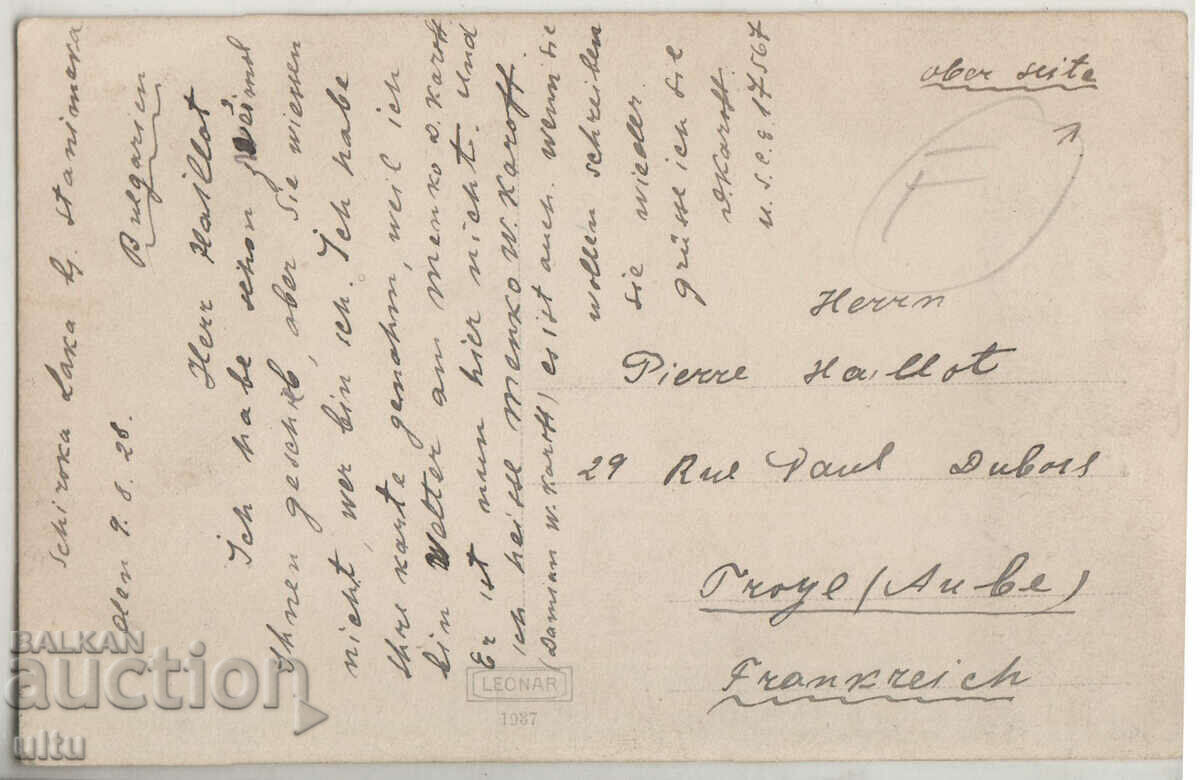 Schiroka Laka bg. Stanimaka
Bulgarien
den 9.8.28.
Herr Haillot
Ich habe schon zweimal
Ihnen geschikt, ober Sie wiessen
nicht, wer bin ich. Ich habe
Ihre karte genohm, weil ich
bin Wetter am menko D. karoff
Er ist nun hier nicht. Und
ich heisse menko W. Karoff.
(Damian W. Karoff) es ist auch. wenn sie
wollen schreiben
sie wieder.
grüsse ich sie
D. Karoff.
U.S.C.E. 17567
ober seite
F
Herrn
Pierre Haillot
29 Rue Paul Dubois
Troye (Aube)
Frankreich
LEONAR
1937
BALKAN
auction
ultu